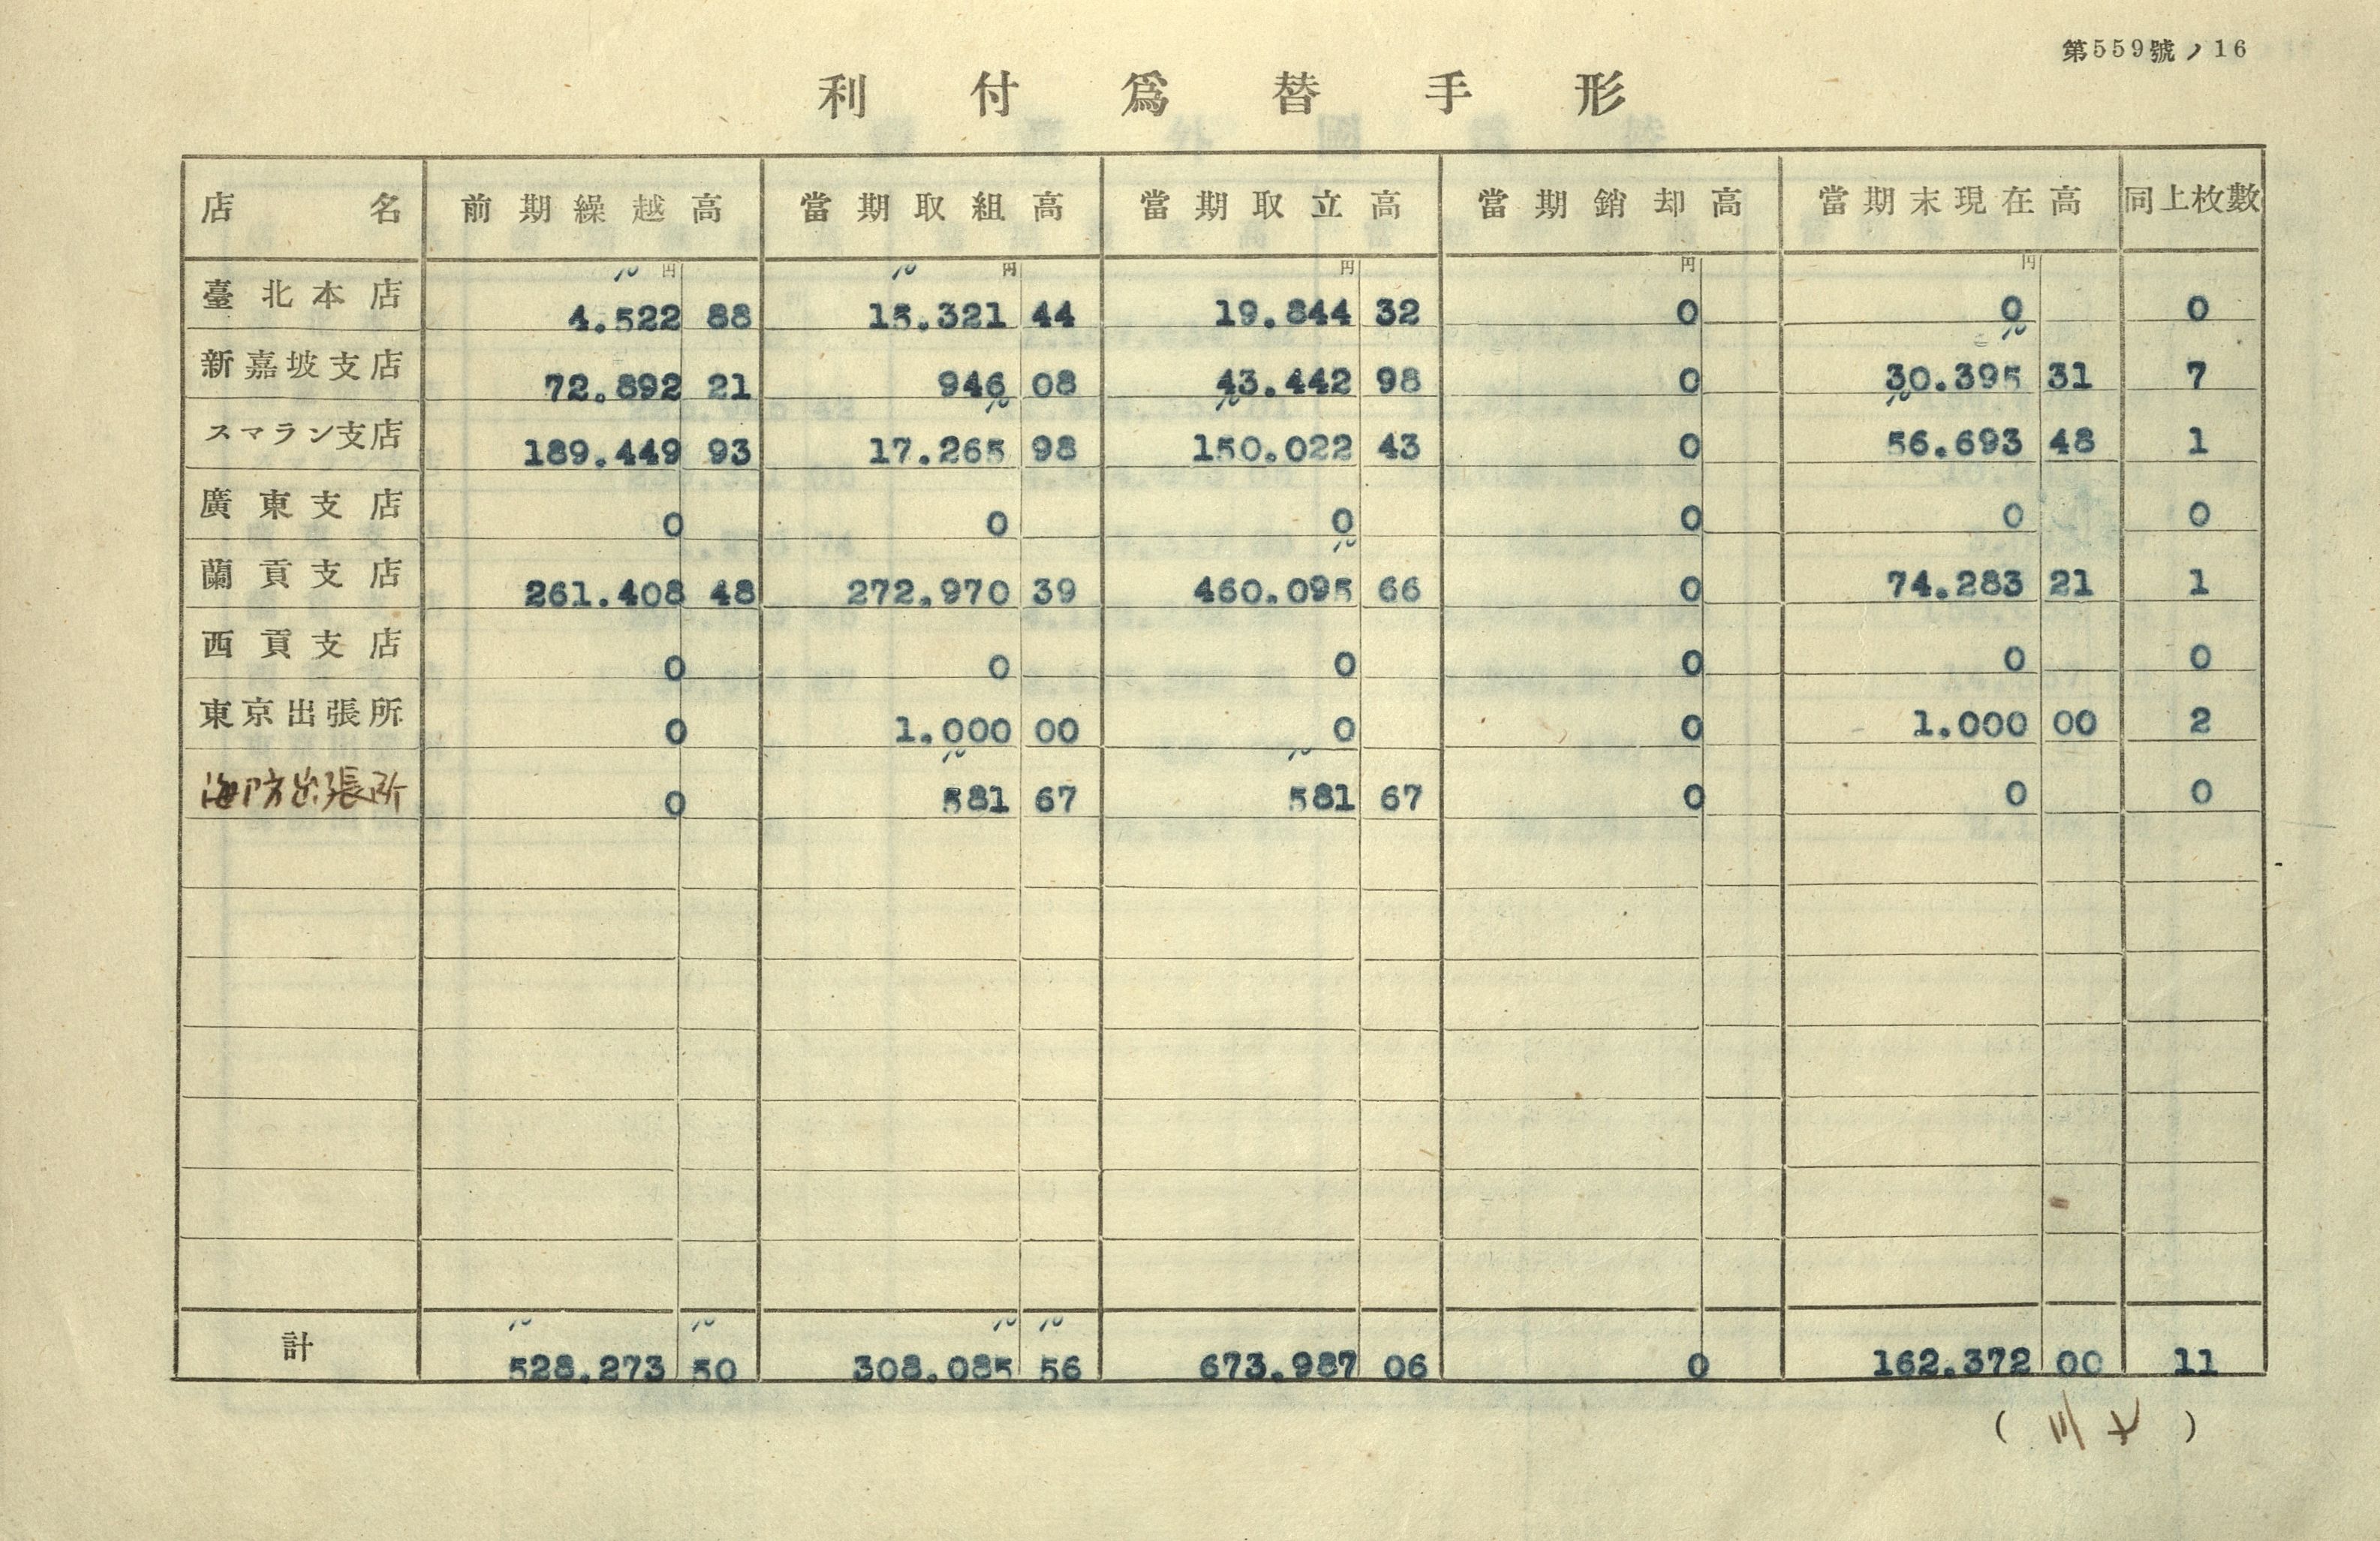 第559號ノ16
利付爲替手形
店名 前期繰越高 當期取組高 當期取立高 當期銷却高 當期末現在高 同上枚數
円 円 円 円 円
臺北本店 4.522 88 15.321 44 19.844 32 0 0 0
新嘉坡支店 72.892 21 946 08 43.442 98 0 30.395 31 7
スマラン支店 189.449 93 17.265 98 150.022 43 0 56.693 48 1
廣東支店 0 0 0 0 0 0
蘭貢支店 261.408 48 272.970 39 460.095 66 0 74.283 21 1
西貢支店 0 0 0 0 0 0
東京出張所 0 1.000 00 0 0 1.000 00 2
海防出張所 0 581 67 581 67 0 0 0
計 528.273 50 308.085 56 673.987 06 0 162.372 00 11